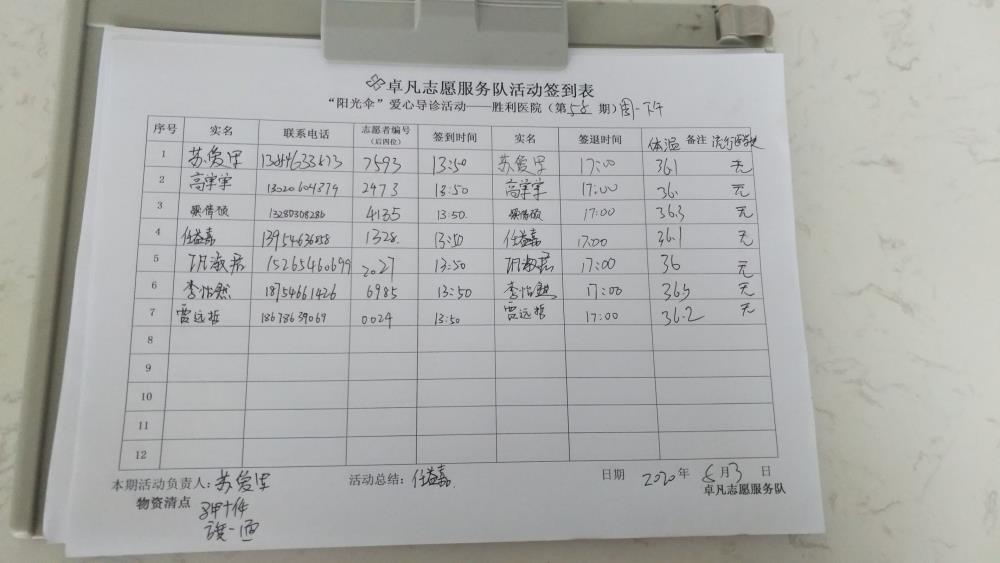 卓凡志愿服务队活动签到表
“阳光伞”爱心导诊活动——胜利医院（第58期）周一下午
序号 实名 联系电话 志愿者编号（后四位） 签到时间 实名 签退时间 体温 备注
1 苏爱军 7593 13:50 苏爱军 17:00 36.1 无
2 13020604379 2473 13:50 17:00 36. 无
3 13280308286 4135 13:50. 17:00 36.3 无
4 任益嘉 1328. 13:50 任益嘉 17:00 36.1 无
5 巩淑君 15265460699 2027 13:50 巩淑君 17:00 36 无
6 李怡然 18754661426 6985 13:50 李怡然 17:00 36.5 无
7 雷远哲 18678639069 0024 13:50 雷远哲 17:00 36.2 无
8
9
10
11
12
本期活动负责人：苏爱军 活动总结：任益嘉 日期 2020年8月3日
物资清点 卓凡志愿服务队